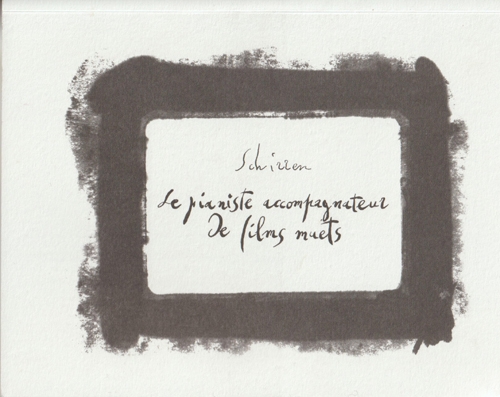 Schirren
Le pianiste accompagnateur
De films muets